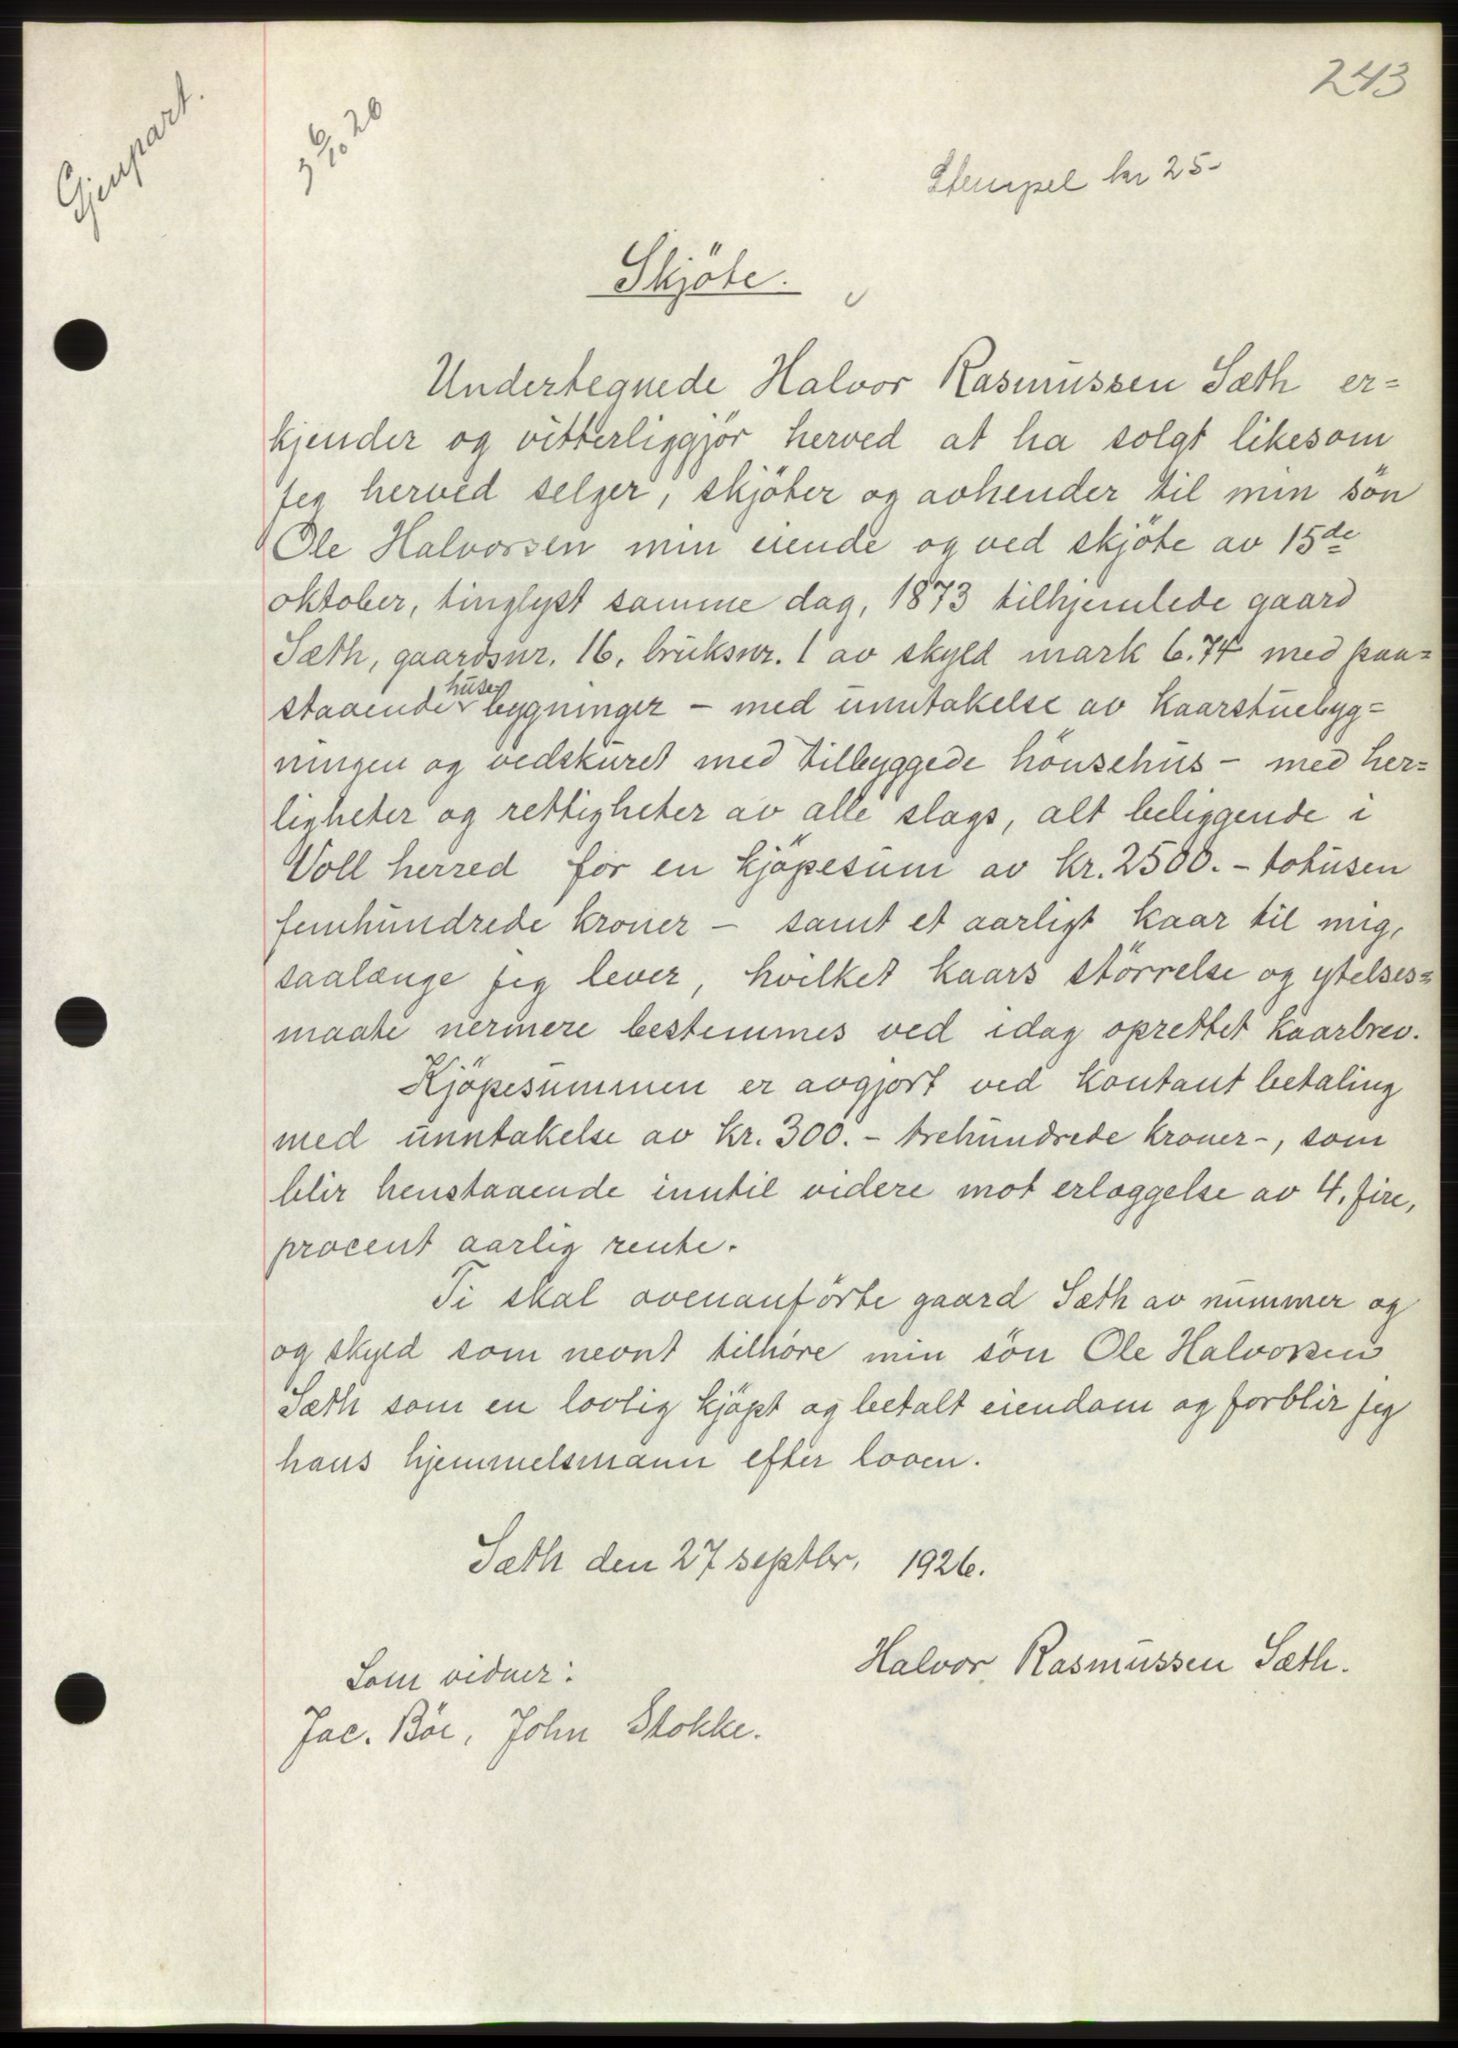 243
Gjenpart.
6/10 26
Stempel kr 25-
Skjöte.
Undertegnede Halvor Rasmussen Sæth er=
kjender og vitterliggjör herved at ha solgt likesom
jeg herved selger, skjöter og avhender til min sön
Ole Halvorsen min eiende og ved skjöte av 15de
oktober, tinglyst samme dag, 1873 tilhjemlede gaard
Sæth, gaardsnr. 16, bruksnr. 1 av skyld mark 6.74 med paa=
staaende huse bygninger – med unntakelse av kaarstuebyg=
ningen og vedskuret med tilbyggede hönsehus – med her=
ligheter og rettigheter av alle slags, alt beliggende i
Voll herred for en kjöpesum av kr. 2500. – totusen
femhundrede kroner – samt et aarligt kaar til mig,
saalænge jeg lever, hvilket kaars störrelse og ytelses=
maate nermere bestemmes ved idag oprettet kaarbrev.
Kjöpesummen er avgjort ved kontant betaling
med unntakelse av kr. 300. – trehundrede kroner –, som
blir henstaaende inntil videre mot erlæggelse av 4, fire,
procent aarlig rente.
Ti skal ovenanförte gaard Sæth av nummer og
og skyld som nevnt tilhöre min sön Ole Halvorsen
Sæth som en lovlig kjöpt og betalt eiendom og forblir jeg
hans hjemmelsmann efter loven.
Sæth den 27 septbr. 1926.
Halvor Rasmussen Sæth.
Som vidner:
Jac. Böe, John Stokke.